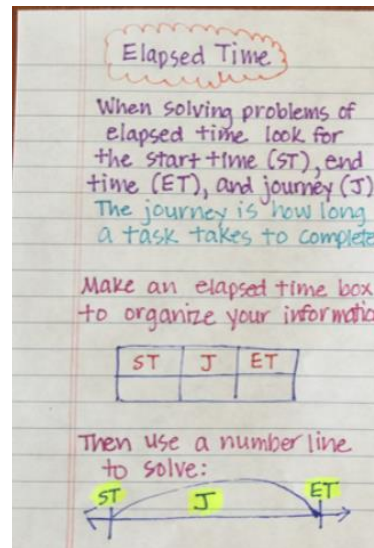 Elapsed Time
When solving problems of
elapsed time look for
the start time (ST), end
time (ET), and journey (J)
The journey is how long
a task takes to complete
Make an elapsed time box
to organize your informatio
ST J ET
Then use a number line
to solve:
ST J ET